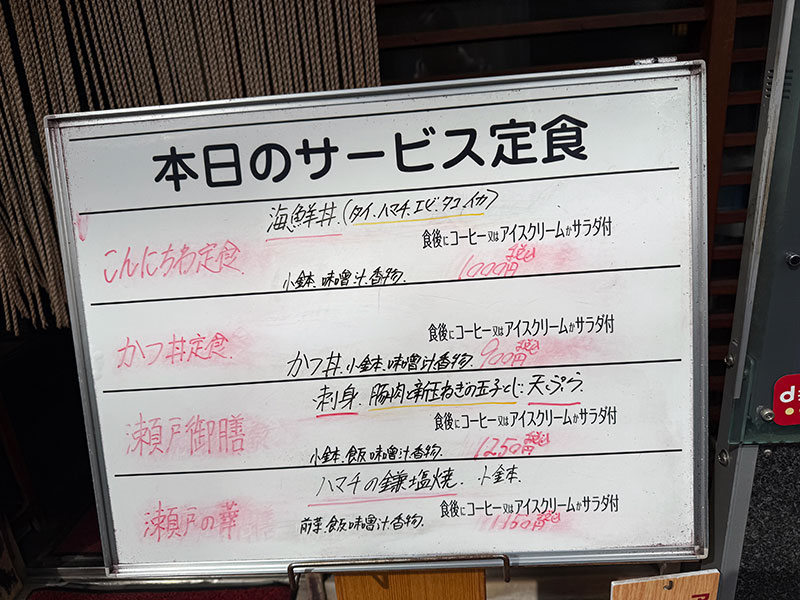 本日のサービス定食
海鮮丼(タイ、ハマチ、エビ、タコ、イカ)
食後にコーヒー又はアイスクリームかサラダ付
こんにちわ定食
小鉢、味噌汁、香物
1000円税込
食後にコーヒー又はアイスクリームかサラダ付
かつ丼定食
かつ丼、小鉢、味噌汁、香物
900円税込
刺身、豚肉と新玉ねぎの玉子とじ、天ぷら
食後にコーヒー又はアイスクリームかサラダ付
瀬戸御膳
小鉢、飯、味噌汁、香物
1250円税込
ハマチの鎌塩焼、小鉢
食後にコーヒー又はアイスクリームかサラダ付
瀬戸の華
前菜、飯、味噌汁、香物
円税込